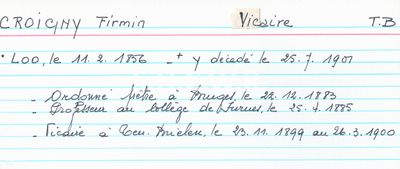 CROIGNY Firmin Vicaire T.B
• LOO, le 11. 2. 1856 _ + y décédé le 25. 7. 1901
_ Ordonné prêtre à Bruges, le 22. 12. 1883
_ Professeur au collège de Furnes, le 25. 4. 1885
_ Vicaire à le 23. 11. 1899 au 26. 3. 1900